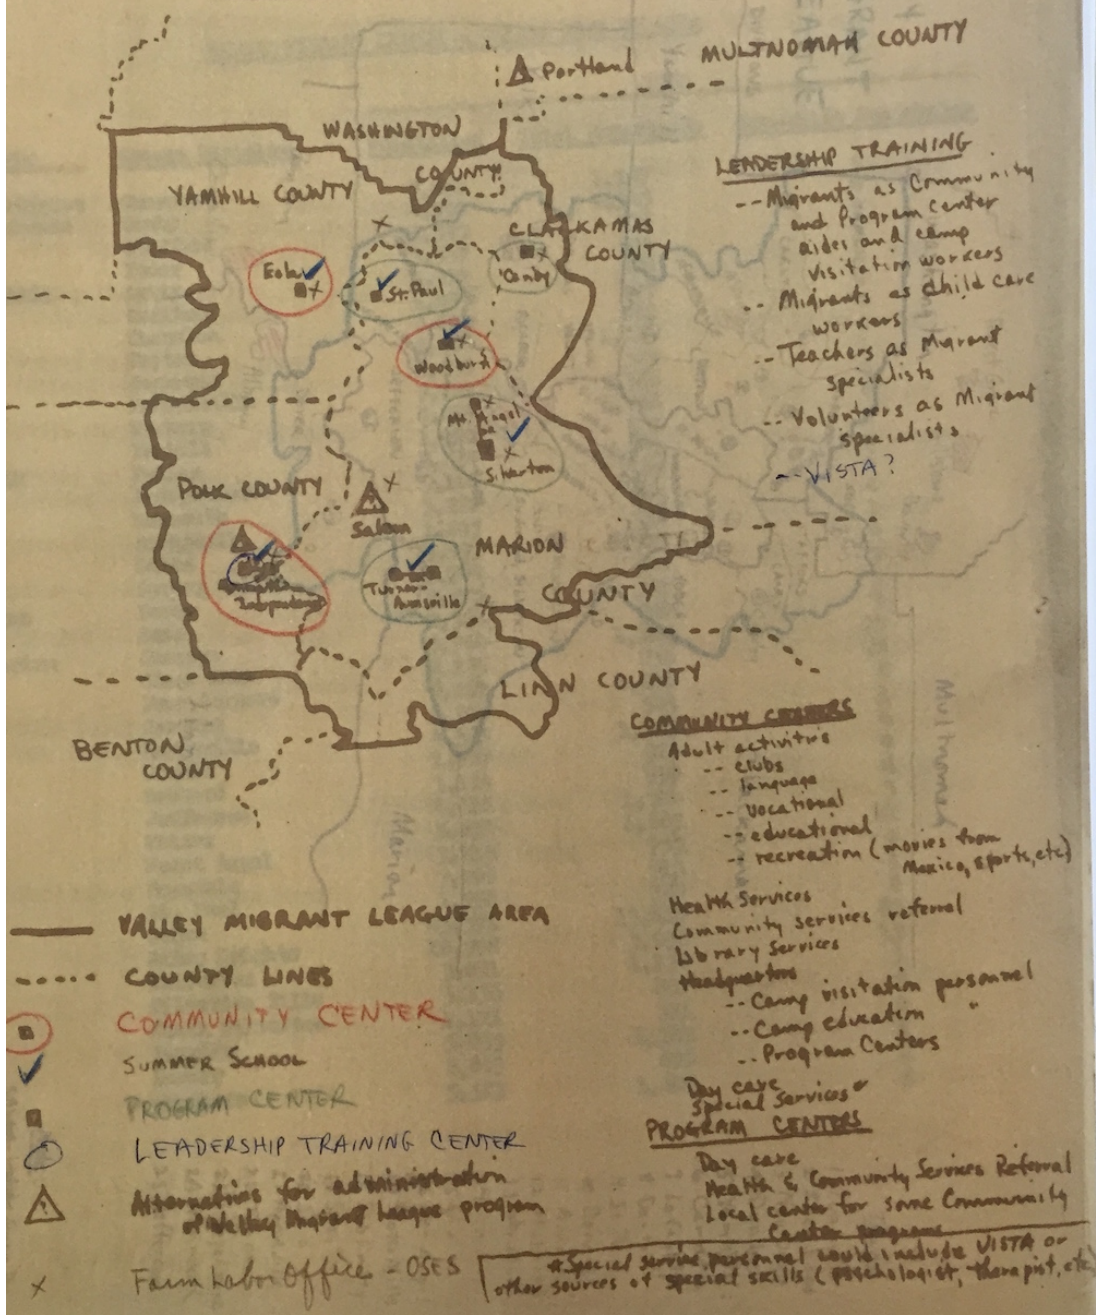 Portland
MULTNOMAH COUNTY
WASHINGTON
COUNTY
YAMHILL COUNTY
CLACKAMAS
COUNTY
Canby
Eola
St. Paul
Woodburn
Mt. Angel
Silverton
POLK COUNTY
Salem
MARION
COUNTY
Independence
Turner-
Aumsville
LINN COUNTY
BENTON
COUNTY
LEADERSHIP TRAINING
-- Migrants as Community
and Program Center
aides and camp
visitation workers
-- Migrants as child care
workers
-- Teachers as Migrant
specialists
-- Volunteers as Migrant
specialists
-- VISTA?
COMMUNITY CENTERS
Adult activities
-- clubs
-- language
-- vocational
-- educational
-- recreation (movies from
Mexico, sports, etc)
Health Services
Community services referral
Library Services
Headquarters
-- Camp visitation personnel
-- Camp education "
-- Program Centers
Day care
Special Services*
PROGRAM CENTERS
Day care
Health & Community Services Referral
Local center for some Community
Center programs
*Special service personnel would include VISTA or
other sources of special skills (psychologist, therapist, etc)
VALLEY MIGRANT LEAGUE AREA
COUNTY LINES
COMMUNITY CENTER
SUMMER SCHOOL
PROGRAM CENTER
LEADERSHIP TRAINING CENTER
Alternatives for administration
of Valley Migrant League program
x Farm Labor Office - OSES
Marion
Multnomah